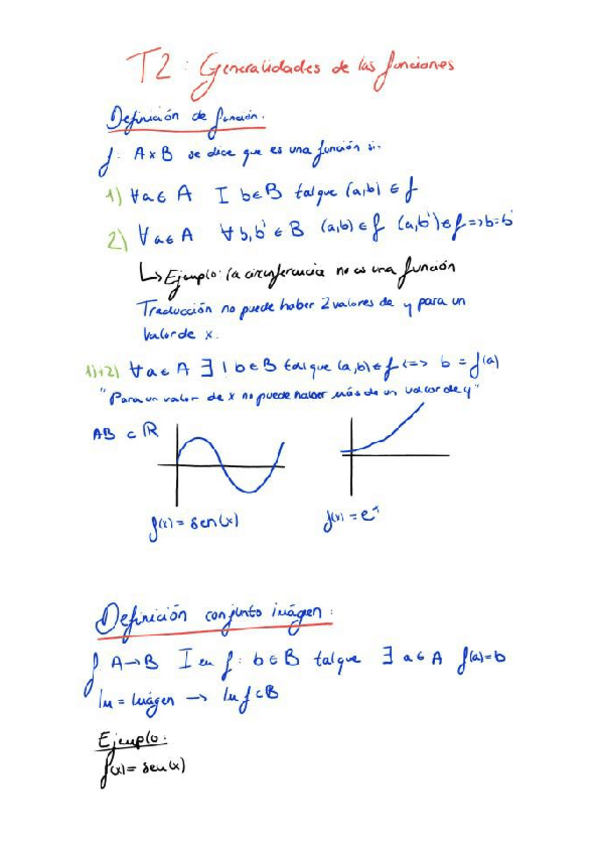 T2: Generalidades de las funciones
Definición de función.
f: A x B se dice que es una función si.
1) ∀a∈A I b∈B tal que (a,b) ∈ f
2) ∀a∈A ∀b,b' ∈ B (a,b) ∈ f (a,b') ∈ f => b=b'
↳ Ejemplo: la circunferencia no es una función
Traducción no puede haber 2 valores de y para un
valor de x.
1)+2) ∀a∈A ∃ | b∈B tal que (a,b)∈f <=> b = f(a)
"Para un valor de x no puede haber más de un valor de y"
AB ⊂ ℝ
f(x) = sen(x)
f(x) = eˣ
Definición conjunto imágen:
f A→B I en f: b∈B tal que ∃ a∈A f(a)=b
Im = Imágen → Im f ⊂ B
Ejemplo:
f(x) = sen(x)